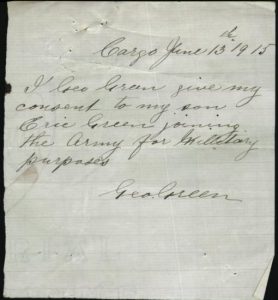 Cargo June 13th 1915
I Geo Green give my
consent to my son
Eric Green joining
the Army for Millitary
purposes
Geo. Green